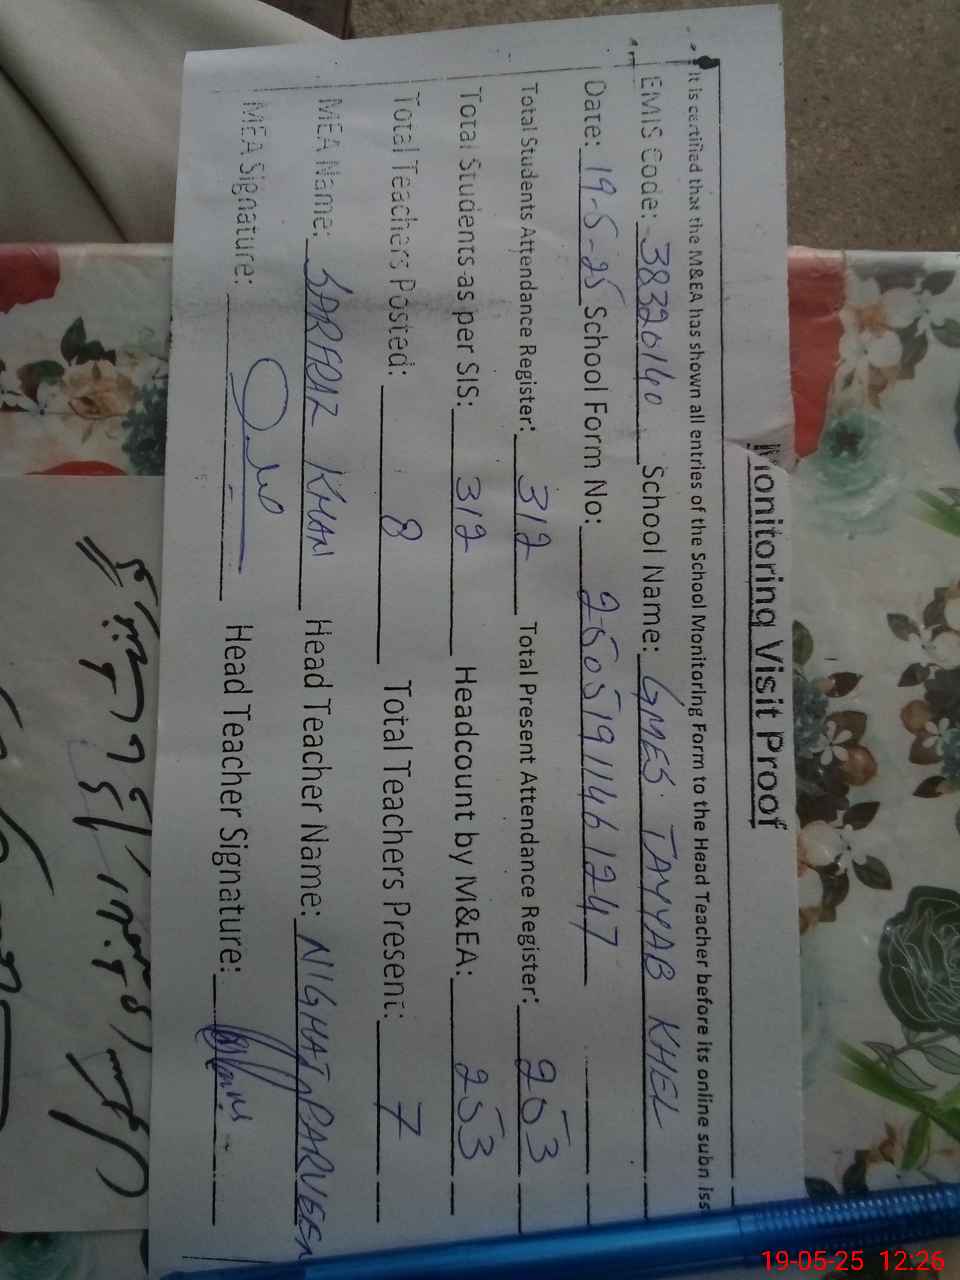 Monitoring Visit Proof
It is certified that the M&EA has shown all entries of the School Monitoring Form to the Head Teacher before its online subn iss
EMIS Code: 38320140 School Name: GMES TAYYAB KHEL
Date: 19-5-25 School Form No: 25051911461247
Total Students Attendance Register: 312 Total Present Attendance Register: 253
Total Students as per SIS: 312 Headcount by M&EA: 253
Total Teachers Posted: 8 Total Teachers Present: 7
MEA Name: SARFRAZ KHAN Head Teacher Name: NIGHAT PARVEEN
MEA Signature: Head Teacher Signature:
19-05-25 12:26